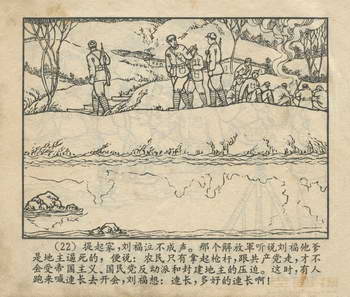 (22) 提起家，刘福泣不成声。那个解放軍听说刘福他爹
是地主逼死的，便说：农民只有拿起枪杆，跟共产党走，才不
会受帝国主义、国民党反动派和封建地主的压迫。这时，有人
跑来喊連长去开会，刘福想：連长，多好的連长啊！